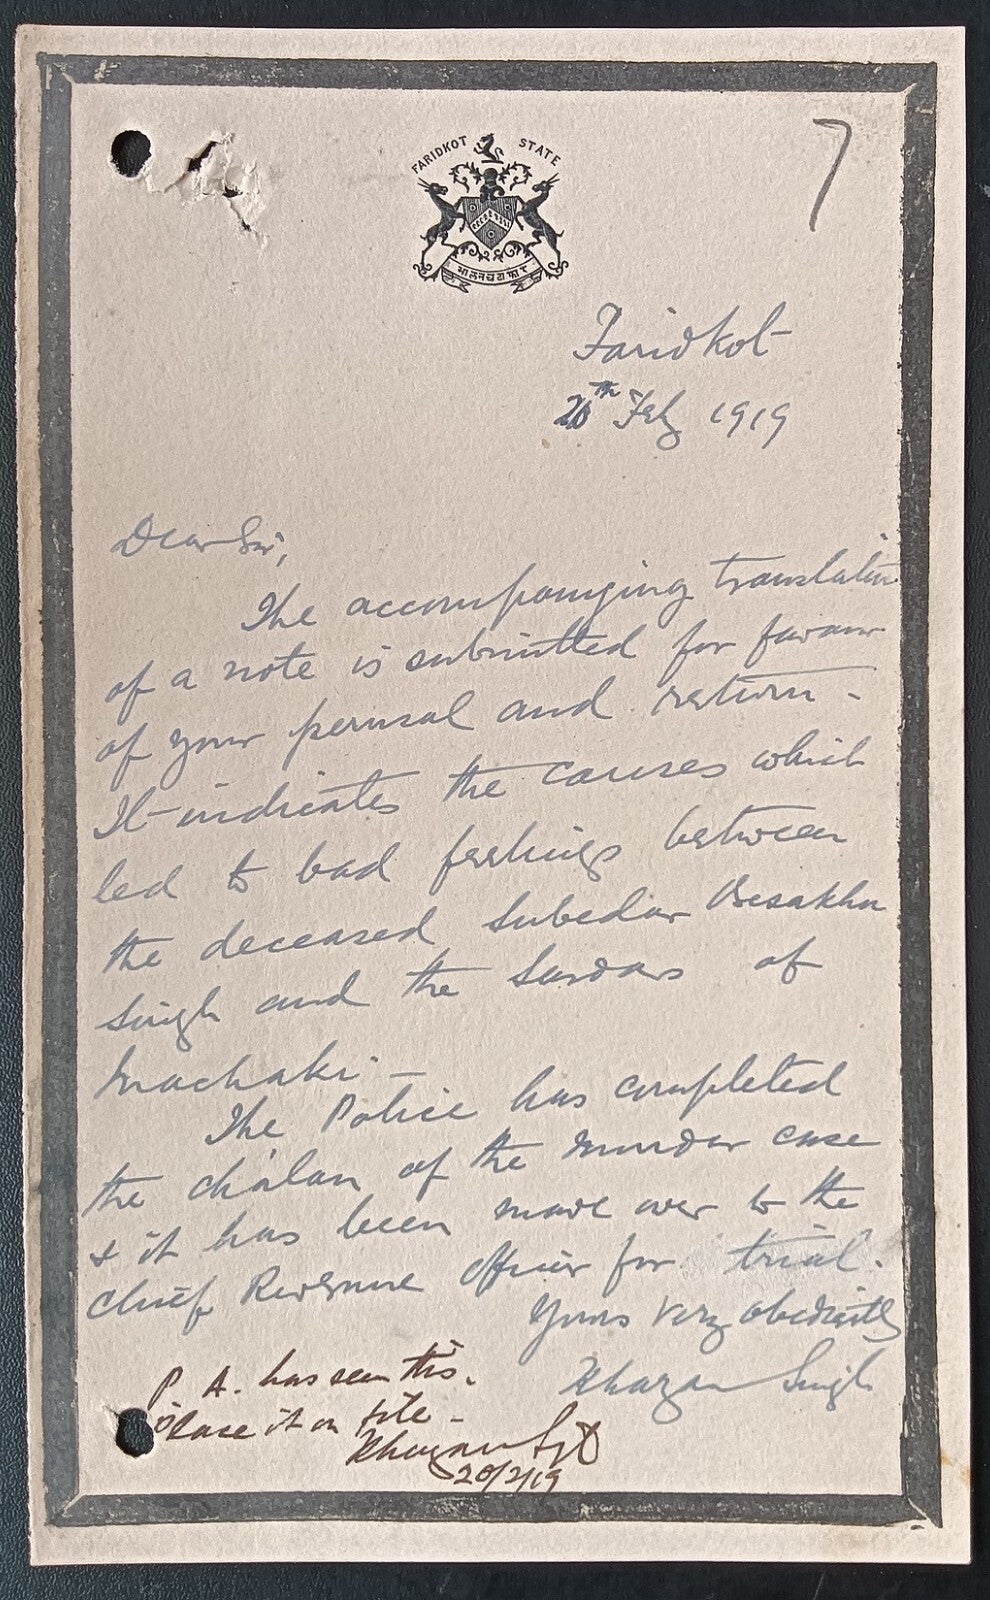 7
FARIDKOT STATE
Faridkot
20th Feby 1919
Dear Sir,
The accompanying translation
of a note is submitted for favour
of your perusal and return -
It indicates the causes which
led to bad feelings between
the deceased Subedar Besakha
Singh and the Sardars of
Machaki -
The Police has completed
the chalan of the murder case
& it has been made over to the
Chief Revenue Officer for trial.
Yours very obediently
Khazan Singh
P. A. has seen this.
Place it on file -
Khazan Singh
20/2/19